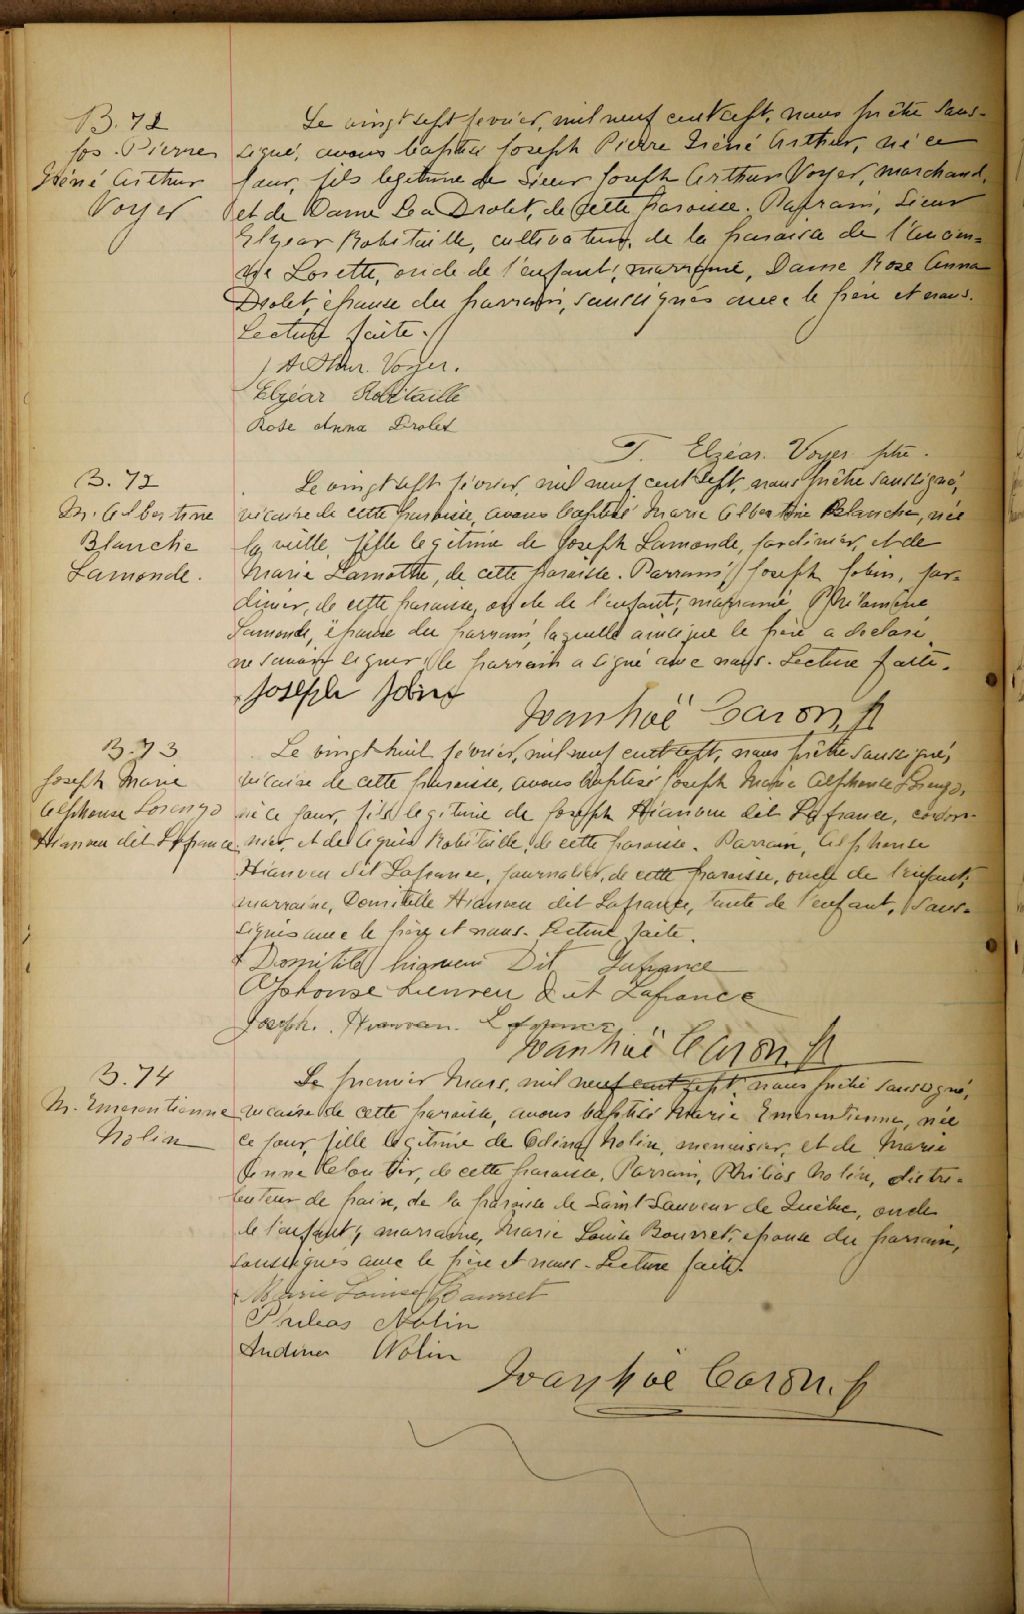 B. 71
Jos. Pierre
Iréné Arthur
Voyer
Le vingt sept février, mil neuf cent sept, nous prêtre sous-
signé, avons baptisé Joseph Pierre Iréné Arthur, né ce
jour, fils legitime de Sieur Joseph Arthur Voyer, marchand,
et de Dame Léa Drolet, de cette paroisse. Parrain, Sieur
Elzear Robitaille, cultivateur, de la paroisse de l'Ancien-
ne Lorette, oncle de l'enfant; marraine, Dame Rose Anna
Drolet, épouse du parrain, soussignés avec le père et nous.
Lecture faite.
J Arthur Voyer.
Elzéar Robitaille
Rose Anna Drolet
T. Elzéar Voyer ptre.
B. 72
M. Albertine
Blanche
Lamonde.
Le vingt sept février, mil neuf cent sept, nous prêtre soussigné,
vicaire de cette paroisse, avons baptisé Marie Albertine Blanche, née
la veille, fille legitime de Joseph Lamonde, jardinier, et de
Marie Lamothe, de cette paroisse. Parrain, Joseph Jobin, jar-
dinier, de cette paroisse, oncle de l'enfant; marraine, Philomène
Lamonde, épouse du parrain, laquelle ainsi que le père a déclaré
ne savoir signer, le parrain a signé avec nous. Lecture faite.
Joseph Jobin
Ivanhoë Caron, p
B. 73
Joseph Marie
Alphonse Lorenzo
Hianveu dit Lafrance
Le vingt huit février, mil neuf cent sept, nous prêtre soussigné,
vicaire de cette paroisse, avons baptisé Joseph Marie Alphonse Lorenzo,
né ce jour, fils legitime de Joseph Hianveu dit Lafrance, cordon-
nier, et de Agnès Robitaille, de cette paroisse. Parrain, Alphonse
Hianveu dit Lafrance, journalier, de cette paroisse, oncle de l'enfant;
marraine, Domitille Hianveu dit Lafrance, tante de l'enfant, sous-
signés avec le père et nous. Lecture faite.
Domitild hianveu Dit Lafrance
Alphonse Dit Lafrance
Joseph. Hianveu. Lafrance
Ivanhoë Caron, p
B. 74
M. Emerentienne
Nolin
Le premier Mars, mil neuf cent sept nous prêtre soussigné,
vicaire de cette paroisse, avons baptisé Marie Emerentienne, née
ce jour, fille legitime de Nolin, menuisier, et de Marie
Anne Cloutier, de cette paroisse. Parrain, Philias Nolin, distri-
buteur de pain, de la paroisse de Saint Sauveur de Québec, oncle
de l'enfant; marraine, Marie Louise Bourret, epouse du parrain,
soussignés avec le père et nous. Lecture faite.
Marie Louise Bourret
Phileas Nolin
Nolin
Ivanhoë Caron, p